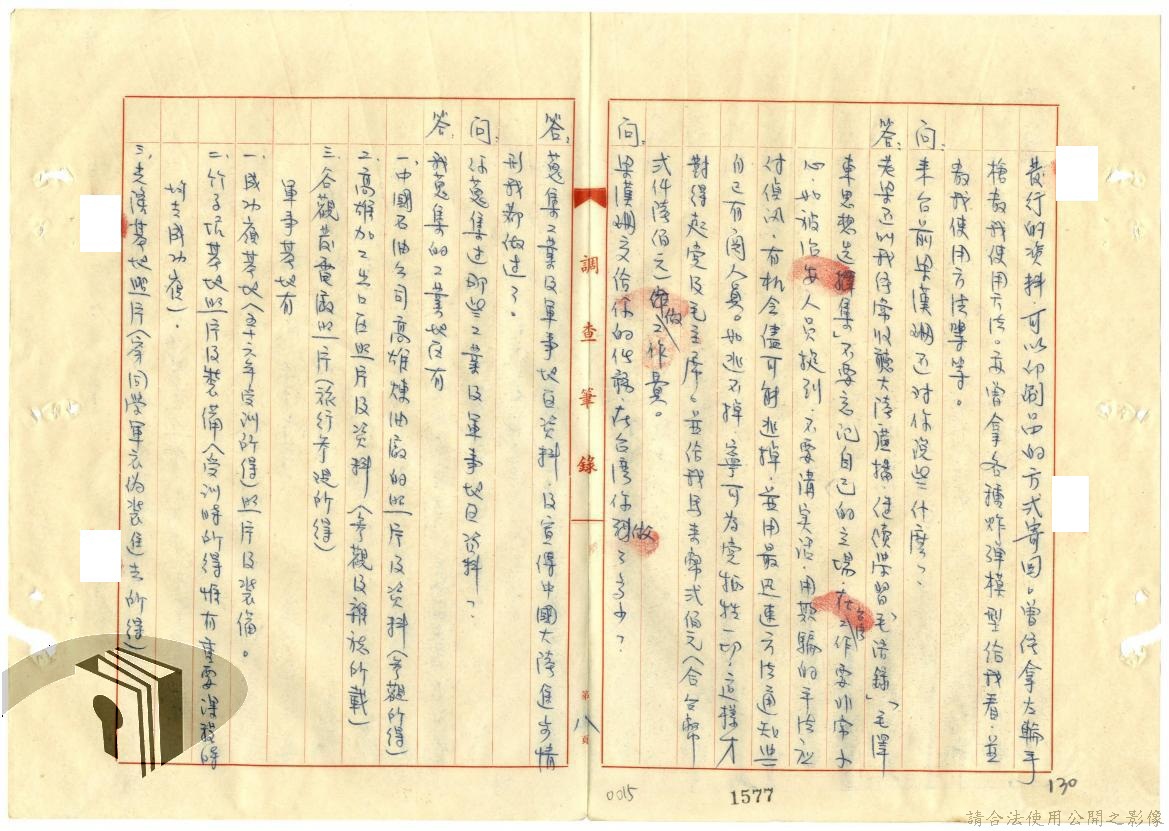 發行的資料可以印刷品的方式寄回。曾經拿左輪手
槍教我使用方法。亦曾拿各種炸彈模型給我看,並
教我使用方法等等。
問:來台前梁漢珊還對你說些什麼?
答:老梁還叫我經常收聽大陸廣播,繼續學習「毛語錄」「毛澤
東思想選集」不要忘記自己的立場,在台灣工作要非常小
心,如被治安人員捉到,不要講實話,用欺騙的手法應
付偵訊,有機會儘可能逃掉,並用最迅速方法通知
自己有關人員。如逃不掉寧可為黨犧牲一切,這樣才
對得起黨及毛主席。並給我馬來幣弍佰元(合台幣
弍仟陸佰元)做工作費。
問:梁漢珊交給你的任務,在台灣你做了多少?
調查筆錄
第八頁
答:蒐集工業及軍事地區資料,及宣傳中國大陸進步情
形我都做過了。
問:你蒐集過那些工業及軍事地區資料?
答:我蒐集的工業地區有
一、中國石油公司高雄煉油廠的照片及資料(參觀所得)
二、高雄加工出口區照片及資料(參觀及雜誌所載)
三、谷關發電廠照片(旅行參觀所得)
軍事基地有
一、成功嶺基地(五十六年受訓所得)照片及裝備。
二、竹子坑基地照片及裝備(受訓時所得惟有重要課程時
均去成功嶺)。
三、基地照片(穿同學軍衣偽裝進去所得)
130
0015
1577
請合法使用公開之影像